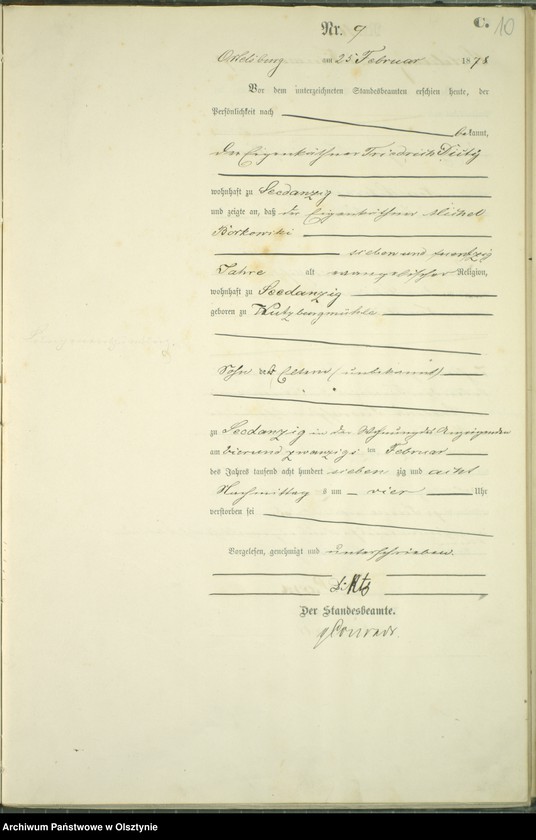 C. 10
Nr. 9
Ortelsburg am 25 Februar 1878
Vor dem unterzeichneten Standesbeamten erschien heute, der
Persönlichkeit nach
bekannt,
der Eigenkäthner Friedrich
wohnhaft zu Seedanzig
und zeigte an, daß der Eigenkäthner Michael
Borkowski
sieben und zwanzig
Jahre alt evangelischer Religion,
wohnhaft zu Seedanzig
geboren zu Kutzburgmühle
Sohn der Eltern (unbekannt)
zu Seedanzig in der Wohnung des Anzeigenden
am vier und zwanzigs ten Februar
des Jahres tausend acht hundert sieben zig und acht
Nachmittag s um vier Uhr
verstorben sei
Vorgelesen, genehmigt und unterschrieben.
Der Standesbeamte.
Conrad
Archiwum Państwowe w Olsztynie